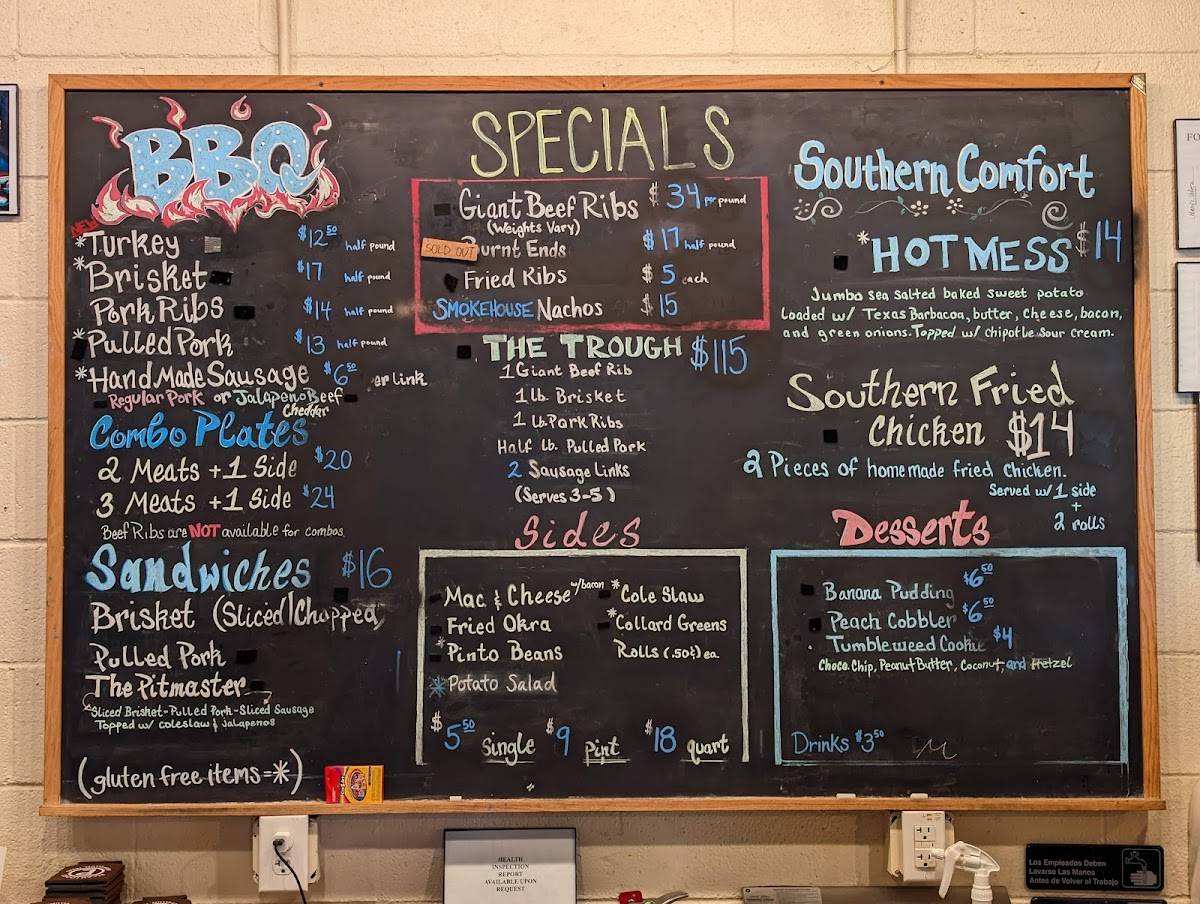 BBQ
NEW
*Turkey $12.50 half pound
*Brisket $17 half pound
Pork Ribs $14 half pound
*Pulled Pork $13 half pound
*HandMade Sausage $6.50 er link
Regular Pork or Jalapeno Beef
Cheddar
Combo Plates
2 Meats + 1 Side $20
3 Meats + 1 Side $24
Beef Ribs are NOT available for combos
Sandwiches $16
Brisket (Sliced/Chopped)
Pulled Pork
The Pitmaster
Sliced Brisket-Pulled Pork-Sliced Sausage
Topped w/ coleslaw & Jalapenos
(gluten free items=*)
SPECIALS
Giant Beef Ribs $34 per pound
(Weights Vary)
SOLD OUT urnt Ends $17 half pound
Fried Ribs $5 each
SMOKEHOUSE Nachos $15
THE TROUGH $115
1 Giant Beef Rib
1 lb. Brisket
1 lb. Pork Ribs
Half lb. Pulled Pork
2 Sausage Links
(Serves 3-5)
Sides
Mac & Cheese w/bacon
Fried Okra
*Pinto Beans
*Potato Salad
*Cole Slaw
*Collard Greens
Rolls (.50¢) ea
$5.50 Single $9 Pint $18 quart
Southern Comfort
*HOT MESS $14
Jumbo sea salted baked sweet potato
Loaded w/ Texas Barbacoa, butter, cheese, bacon,
and green onions. Topped w/ Chipotle Sour Cream.
Southern Fried
Chicken $14
2 Pieces of homemade fried chicken.
Served w/ 1 side
+
2 rolls
Desserts
Banana Pudding $6.50
Peach Cobbler $6.50
Tumbleweed Cookie $4
Choco. Chip, Peanut Butter, Coconut, and Pretzel
Drinks $3.50
HEALTH
INSPECTION
REPORT
AVAILABLE UPON
REQUEST
Los Empleados Deben
Lavarse Las Manos
Antes de Volver al Trabajo
FO